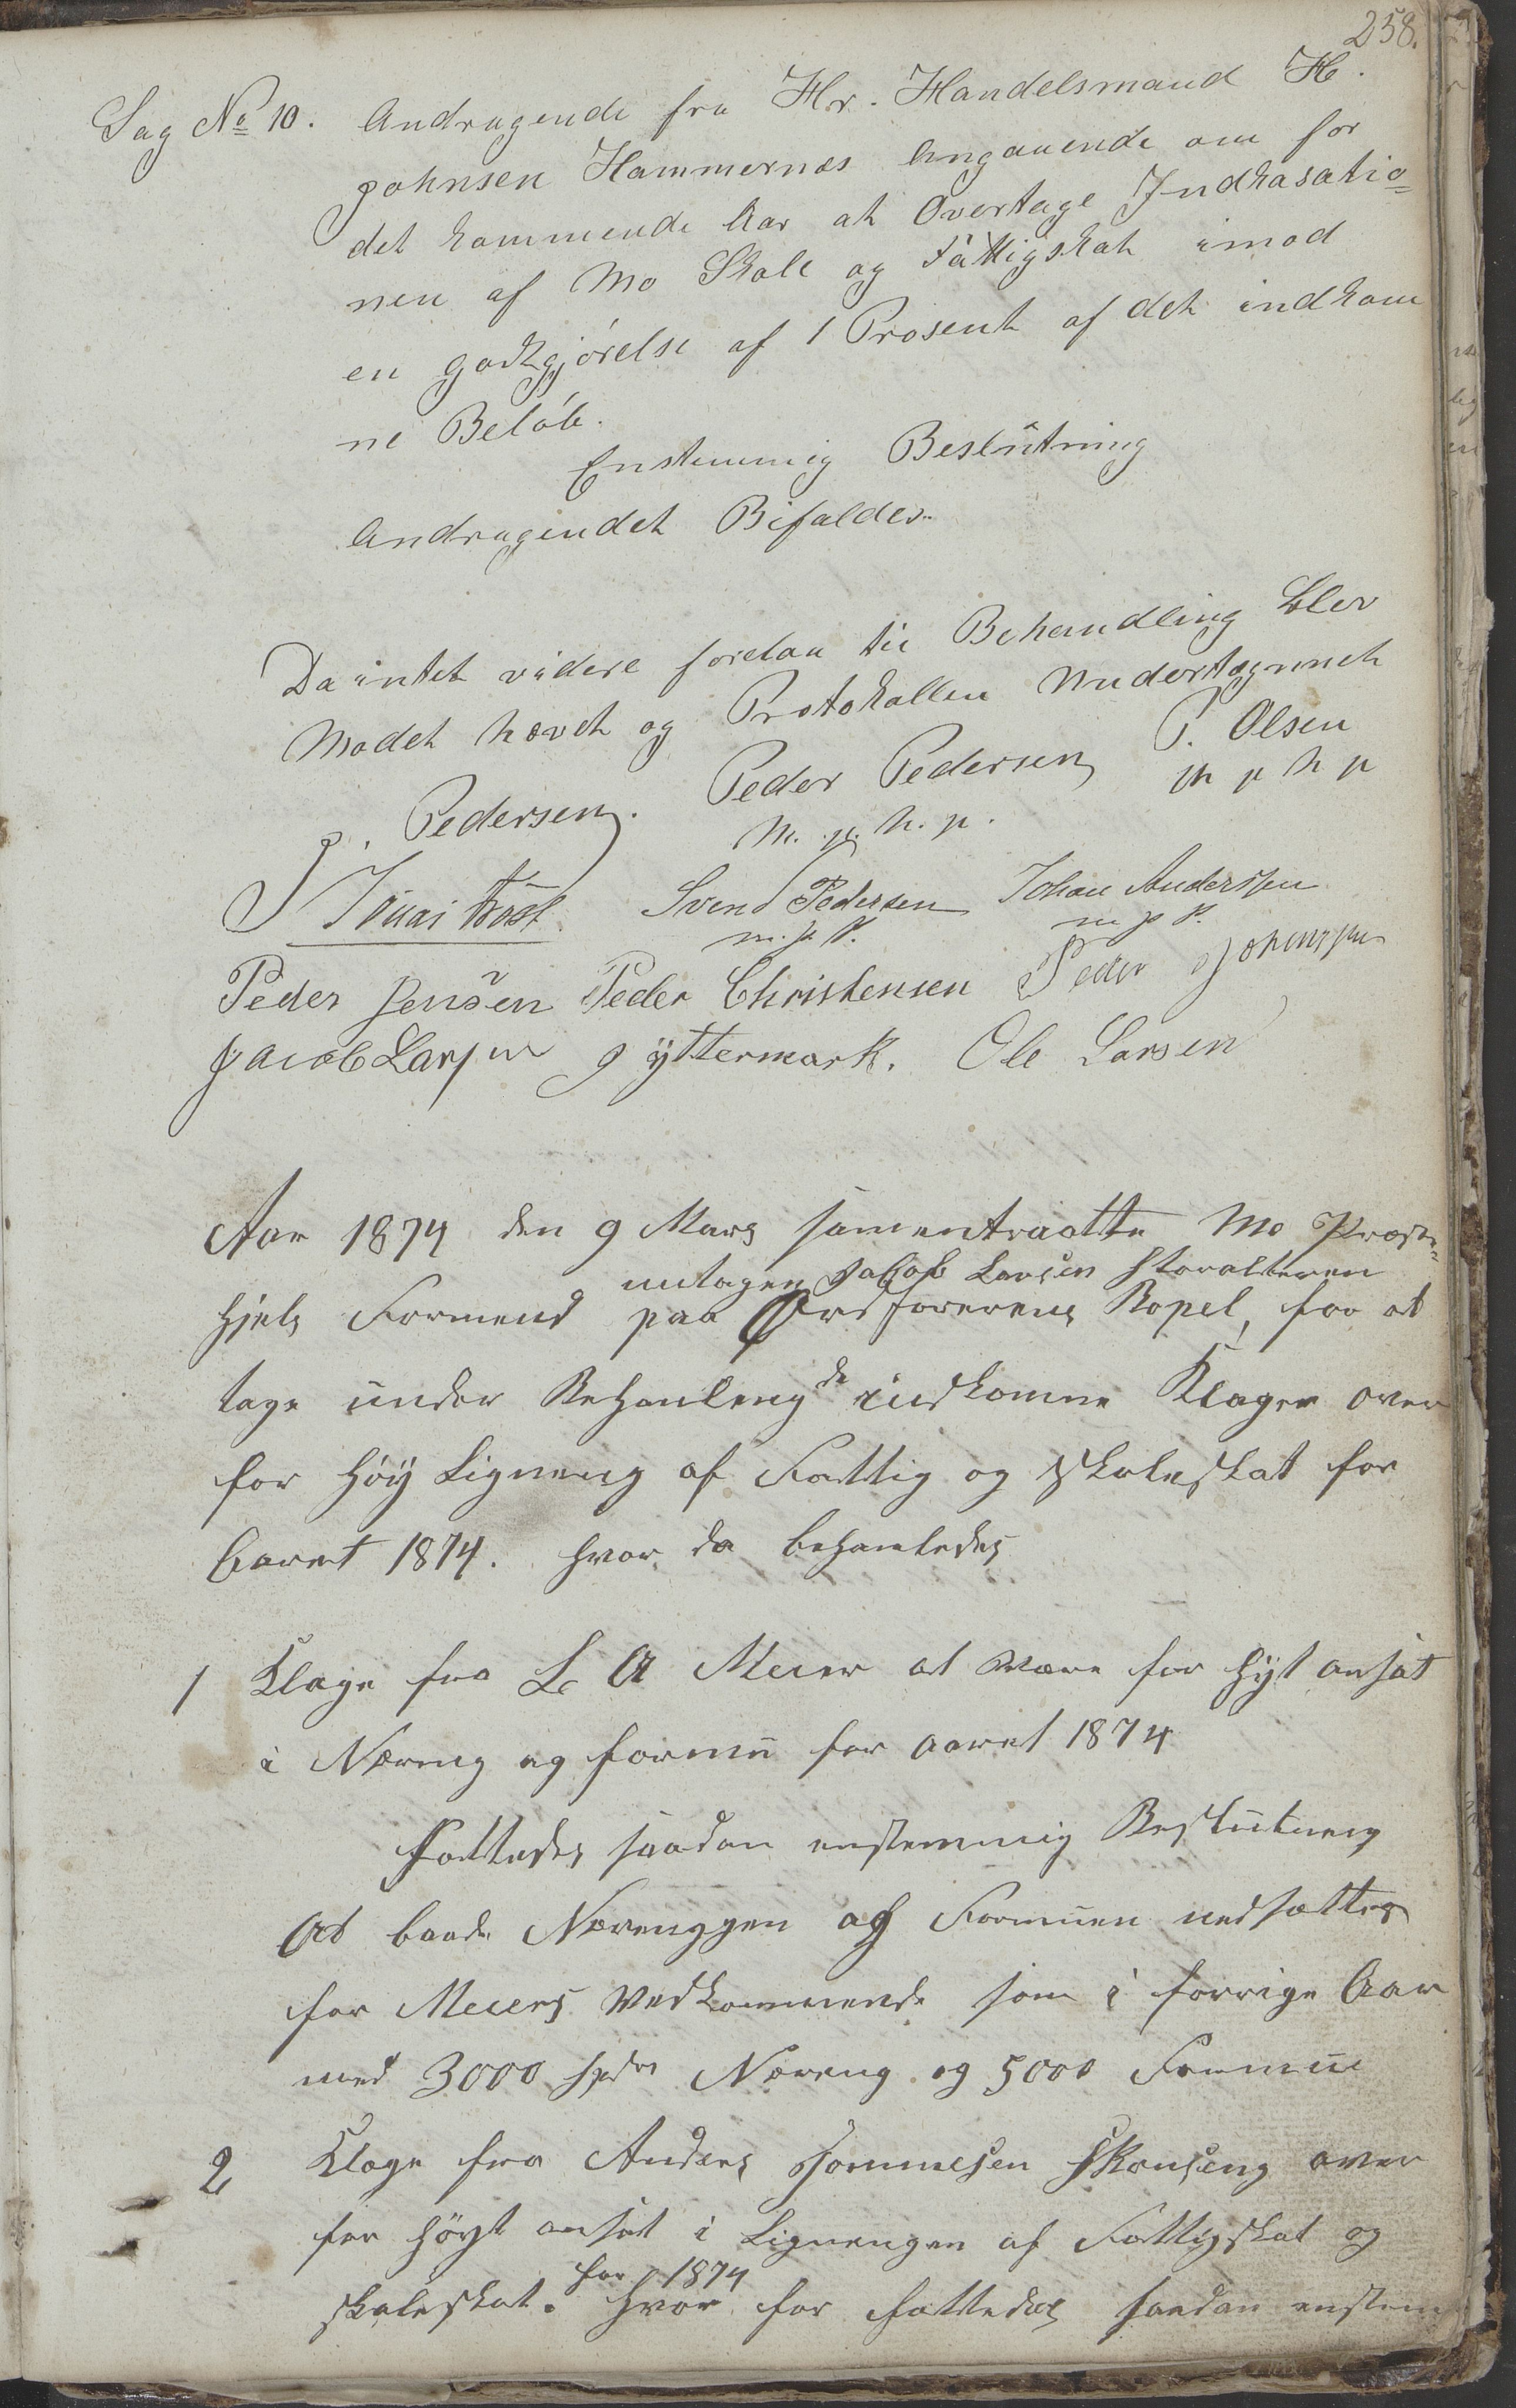 258.
Sag No 10. Andragende fra Hr. Handelsmand H.
Johnsen Hammernæs Angaaende om for
det kommende Aar at Overtage Indkasatio=
nen af Mo Skole og Fattigskat imod
en godtgjörelse af 1 Prosent af det indkom
ne Belöb.
Enstemmig Beslutning
Andragendet Bifaldes.
Da intet videre forelaa til Behandling blev
Mødet hævet og Protokollen Undertegnet
J. Pedersen. Peder Pedersen P. Olsen
m. p. h. p. m p h p
Svend Pedersen Johan Anderssen
m. p. P. m p P.
Peder Jensen Peder Christensen Peder Johanssen
Jacob Larsen J Yttermark. Ole Larsen
Aar 1874 den 9 Mars samentraatte Mo Præste=
untagen Jakob Larsen Storalteren
gjels Formend paa Ordførerens Bopel, for at
tage under Behanleng de indkomne Klager over
for höy Ligneng af Fattig og Skoleskat for
Aaret 1874. hvor da behanledes
1 Klage fra L A Meier at være for hyt ansat
i Næreng og formu for aaret 1874
Fattedes saadan enstemmig Beslutneng
At baade Nærenggen og Formuen nedsættes
for Meiers Vedkommende som i forrige Aar
med 3000 spdr Næreng og 5000 Formue
2 Klage fra Anders Tommesen Skonseng over
for höyt ansat i Lignengen af Fattigskat og
for 1874
skoleskat. hvor for fattedes saadan enstem